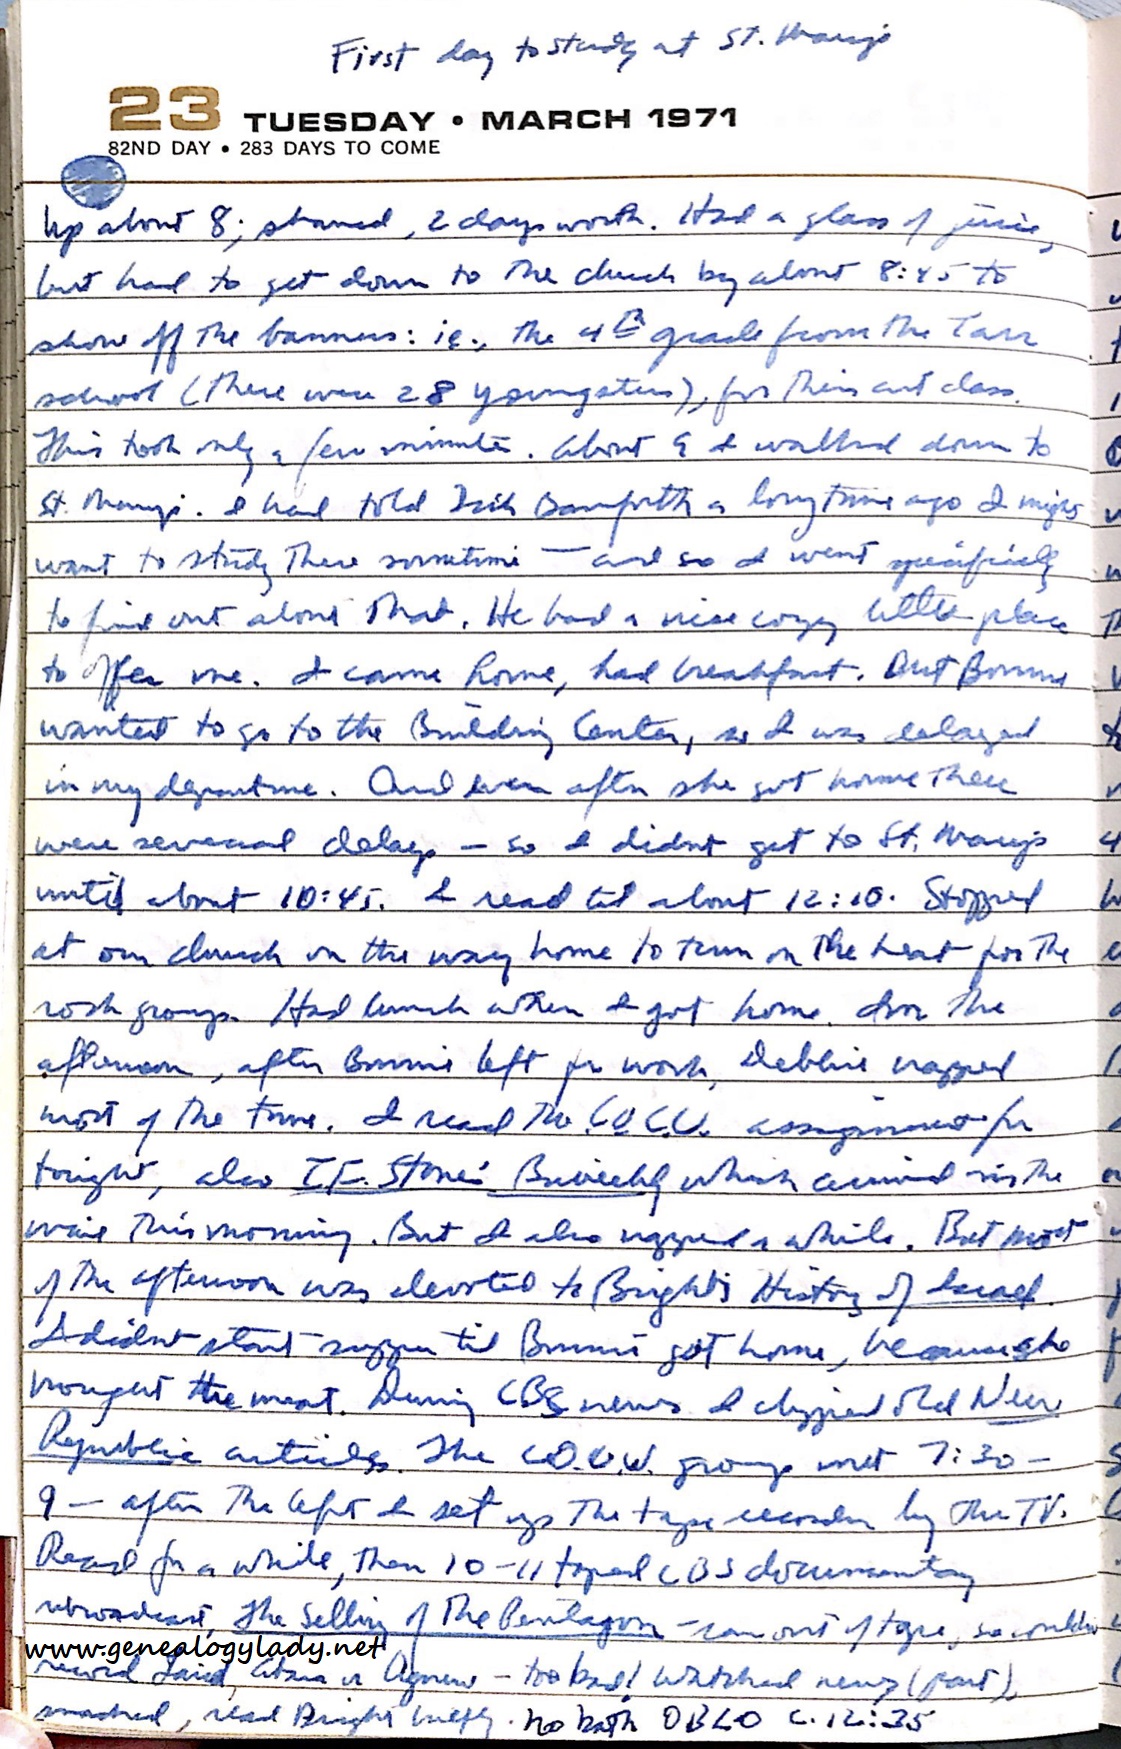 First day to study at St. Mary's
23 TUESDAY • MARCH 1971
82ND DAY • 283 DAYS TO COME
Up about 8; shaved, 2 days worth. Had a glass of juice,
but had to get down to the church by about 8:45 to
show off the banners: ie., the 4th grade from the Tarr
school (there were 28 youngsters), for their art class.
This took only a few minutes. About 9 I walked down to
St. Mary's. I had told Dick Bamforth a long time ago I might
want to study there sometime — and so I went specifically
to find out about that. He had a nice cozy little place
to offer me. I came home, had breakfast. But Bonnie
wanted to go to the Building Center, so I was delayed
in my departure. And even after she got home there
were several delays — so I didnt get to St. Mary's
until about 10:45. I read til about 12:10. Stopped
at our church on the way home to turn on the heat for the
rock group. Had lunch when I got home. In the
afternoon, after Bonnie left for work, Debbie napped
most of the time. I read the C.O.C.U. assignment for
tonight, also I.F. Stone's Biweekly which arrived in the
mail this morning. But I also napped a while. But most
of the afternoon was devoted to Bright's History of Israel.
I didnt start supper til Bonnie got home, because she
brought the meat. During CBS news I clipped old New
Republic articles. The C.O.C.U. group met 7:30 –
9 — after the left I set up the tape recorder by the TV.
Read for a while, then 10–11 taped CBS documentary
rebroadcast, The Selling of the Pentagon – ran out of tape, so couldn't
www.genealogylady.net
record Laird, or Agnew – too bad! Watched news (part),
snacked, read Bright briefly. No bath OBLO c. 12:35